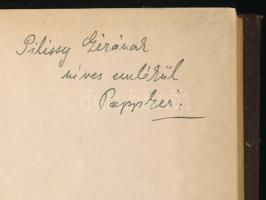 Pilissy Gézának
szives emlékül
Papp